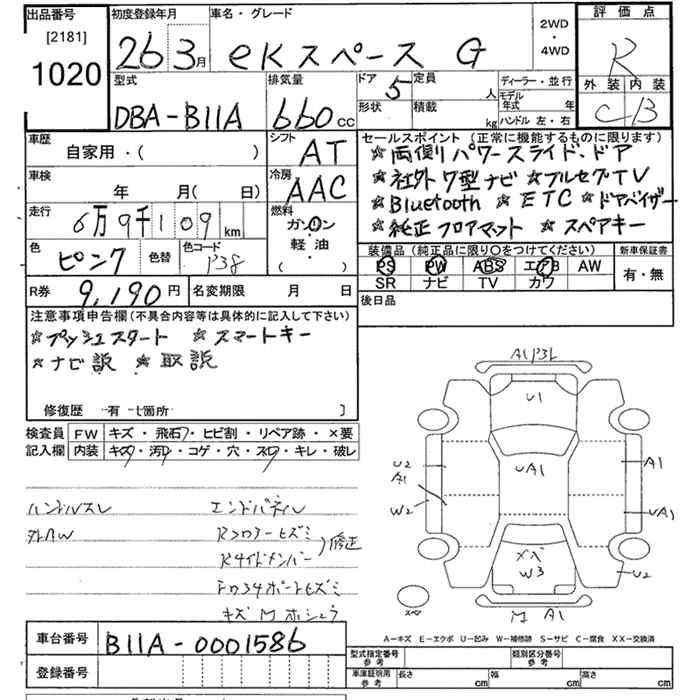 出品番号 初度登録年月 車名・グレード 2WD・4WD 評価点
[2181]
1020 26 3月 eKスペース G R
型式 排気量 ドア 5 定員 人 ディーラー・並行 外装 内装
DBA-B11A 660cc 形状 積載 kg モデル年式 年 C B
ハンドル 左・右
車歴 自家用・( ) シフト AT セールスポイント(正常に機能するものに限ります)
☆両側パワースライドドア
車検 年 月( ) 冷房 AAC ☆社外7型ナビ ☆フルセグTV
☆Bluetooth ☆ETC ☆ドアバイザー
走行 6万9千109km 燃料 ガソリン ☆純正フロアマット ☆スペアキー
色 ピンク 色替 色コード P38 軽油 ( ) 装備品(純正品に限り○をつけてください) 新車保証書
PS PW ABS エアB AW 有・無
SR ナビ TV カワ
R券 9,190円 名変期限 月 日 後日品
注意事項申告欄(不具合内容等は具体的に記入して下さい)
☆プッシュスタート ☆スマートキー
☆ナビ説 ☆取説
修復歴 有 七箇所 ]
検査員 FW キズ・飛石・ヒビ割・リペア跡・×要
記入欄 内装 キズ・汚レ・コゲ・穴・スレ・キレ・破レ
ハンドルスレ エンドパネル
外AW Rフロアーヒズミ 修正
Rサイドメンバー
キズMホシュウ
A1 P3L
U1
U2 A1 UA1 A1
W2 UA1
XX W3 U2
スペア M A1
A-キズ E-エクボ U-凹み W-補修跡 S-サビ C-腐食 XX-交換済
車台番号 B11A-0001586
型式指定番号 参考 類別区分番号 参考
登録番号 車庫証明用 参考 長さ cm 幅 cm 高さ cm